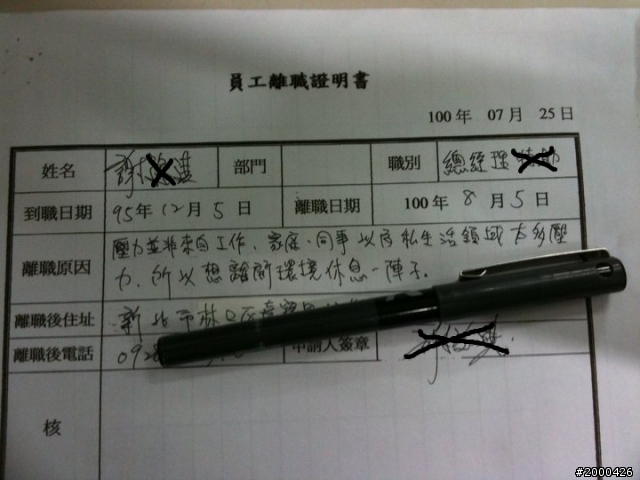 員工離職證明書
100 年 07 月 25 日
姓名 謝 部門 職別 總經理
到職日期 95年12月5日 離職日期 100 年 8 月 5 日
離職原因 壓力並非來自工作、家庭、同事 以及私生活領域太多壓
力、所以想離開環境休息一陣子.
離職後住址 新北市林口區
離職後電話 092 申請人簽章
核
#2000426